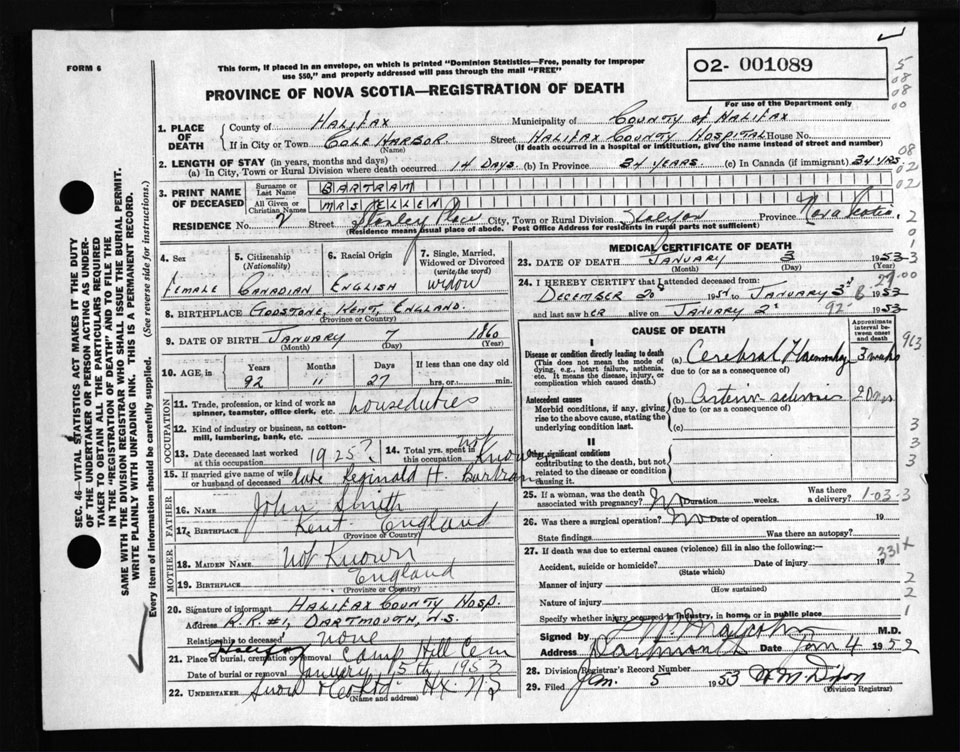 FORM 6
This form, if placed in an envelope, on which is printed "Dominion Statistics—Free, penalty for improper
use $50," and properly addressed will pass through the mail "FREE"
PROVINCE OF NOVA SCOTIA—REGISTRATION OF DEATH
O2- 001089
For use of the Department only
1. PLACE OF DEATH
County of HALIFAX Municipality of COUNTY OF HALIFAX
If in City or Town COLE HARBOR Street HALIFAX COUNTY HOSPITAL House No.
(Name) (If death occurred in a hospital or institution, give the name instead of street and number)
2. LENGTH OF STAY (in years, months and days)
(a) In City, Town or Rural Division where death occurred 14 DAYS. (b) In Province 34 YEARS. (c) In Canada (if immigrant) 34 YRS.
3. PRINT NAME OF DECEASED
Surname or Last Name BARTRAM
All Given or Christian Names MRS ELLEN
RESIDENCE No. 2 Street Stanley Place City, Town or Rural Division Province Nova Scotia.
(Residence means usual place of abode. Post Office Address for residents in rural parts not sufficient)
4. Sex
FEMALE
5. Citizenship
(Nationality)
CANADIAN
6. Racial Origin
ENGLISH
7. Single, Married,
Widowed or Divorced
(write the word)
WIDOW
8. BIRTHPLACE GODSTONE, KENT, ENGLAND.
(Province or Country)
9. DATE OF BIRTH JANUARY 7 1860
(Month) (Day) (Year)
10. AGE in
Years Months Days If less than one day
92 11 27 hrs. or min.
OCCUPATION
11. Trade, profession, or kind of work as
spinner, teamster, office clerk, etc. house duties
12. Kind of industry or business, as cotton-
mill, lumbering, bank, etc.
13. Date deceased last worked
at this occupation 1925?
14. Total yrs. spent in
this occupation not Known
15. If married give name of wife
or husband of deceased late Reginald H. Bartram
FATHER
16. NAME John Smith
17. BIRTHPLACE Kent England
(Province or Country)
MOTHER
18. MAIDEN NAME Not Known
19. BIRTHPLACE England
(Province or Country)
20. Signature of informant HALIFAX COUNTY HOSP.
Address R.R.#1, DARTMOUTH, N.S.
Relationship to deceased none
21. Place of burial, cremation or removal Halifax Camp Hill Cem
Date of burial or removal January 5th 1953
22. UNDERTAKER Snow & Co Ltd. Hx. N.S
(Name and address)
MEDICAL CERTIFICATE OF DEATH
23. DATE OF DEATH JANUARY 3 1953
(Month) (Day) (Year)
24. I HEREBY CERTIFY that I attended deceased from:
DECEMBER 20 to JANUARY 3 1953
and last saw HER alive on JANUARY 2 1953
CAUSE OF DEATH
Approximate
interval be-
tween onset
and death
I
Disease or condition directly leading to death
(This does not mean the mode of
dying, e.g., heart failure, asthenia,
etc. It means the disease, injury, or
complication which caused death.)
(a) Cerebral Haemorrhage 3 weeks
due to (or as a consequence of)
Antecedent causes
Morbid conditions, if any, giving
rise to the above cause, stating the
underlying condition last.
(b) Arterio sclerosis
due to (or as a consequence of)
(c)
II
Other significant conditions
contributing to the death, but not
related to the disease or condition
causing it.
25. If a woman, was the death
associated with pregnancy? No Duration weeks.
Was there
a delivery?
1-03-3
26. Was there a surgical operation? No Date of operation 19
State findings Was there an autopsy?
27. If death was due to external causes (violence) fill in also the following:—
Accident, suicide or homicide? Date of injury 19
(State which)
Manner of injury
(How sustained)
Nature of injury
Specify whether injury in industry, in home, or in public place
Signed by M.D.
Address Dartmouth Date Jan 4 1952
28. Division Registrar's Record Number
29. Filed Jan. 5 1953
(Division Registrar)
SEC. 46—VITAL STATISTICS ACT MAKES IT THE DUTY
OF THE UNDERTAKER OR PERSON ACTING AS UNDER-
TAKER TO OBTAIN ALL THE PARTICULARS REQUIRED
IN THE "REGISTRATION OF DEATH" AND TO FILE THE
SAME WITH THE DIVISION REGISTRAR WHO SHALL ISSUE THE BURIAL PERMIT.
WRITE PLAINLY WITH UNFADING INK. THIS IS A PERMANENT RECORD.
Every item of information should be carefully supplied. (See reverse side for instructions.)